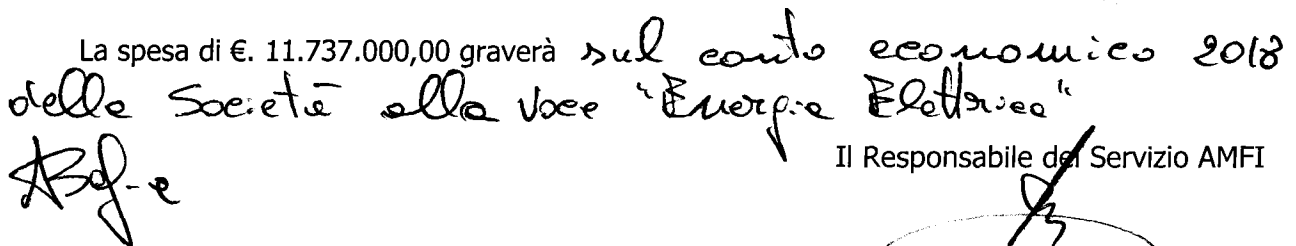 La spesa di €. 11.737.000,00 graverà sul conto economico 2018
della Società alla voce "Energia Elettrica"
Il Responsabile del Servizio AMFI